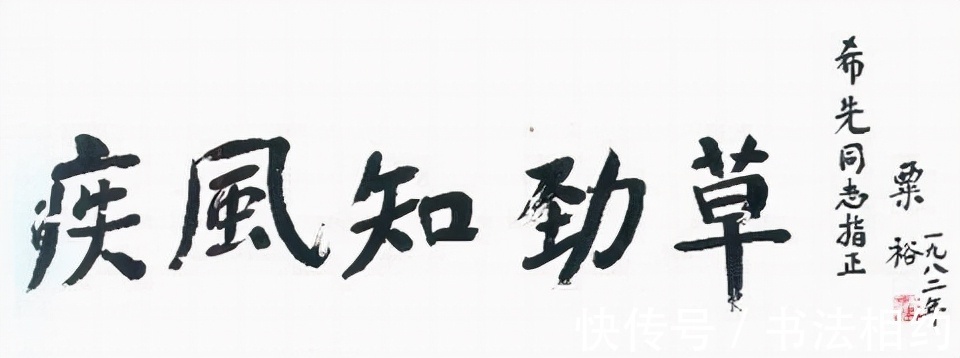 疾風知勁草
希先同志指正
粟裕
一九八二年
快传号 / 书法相约